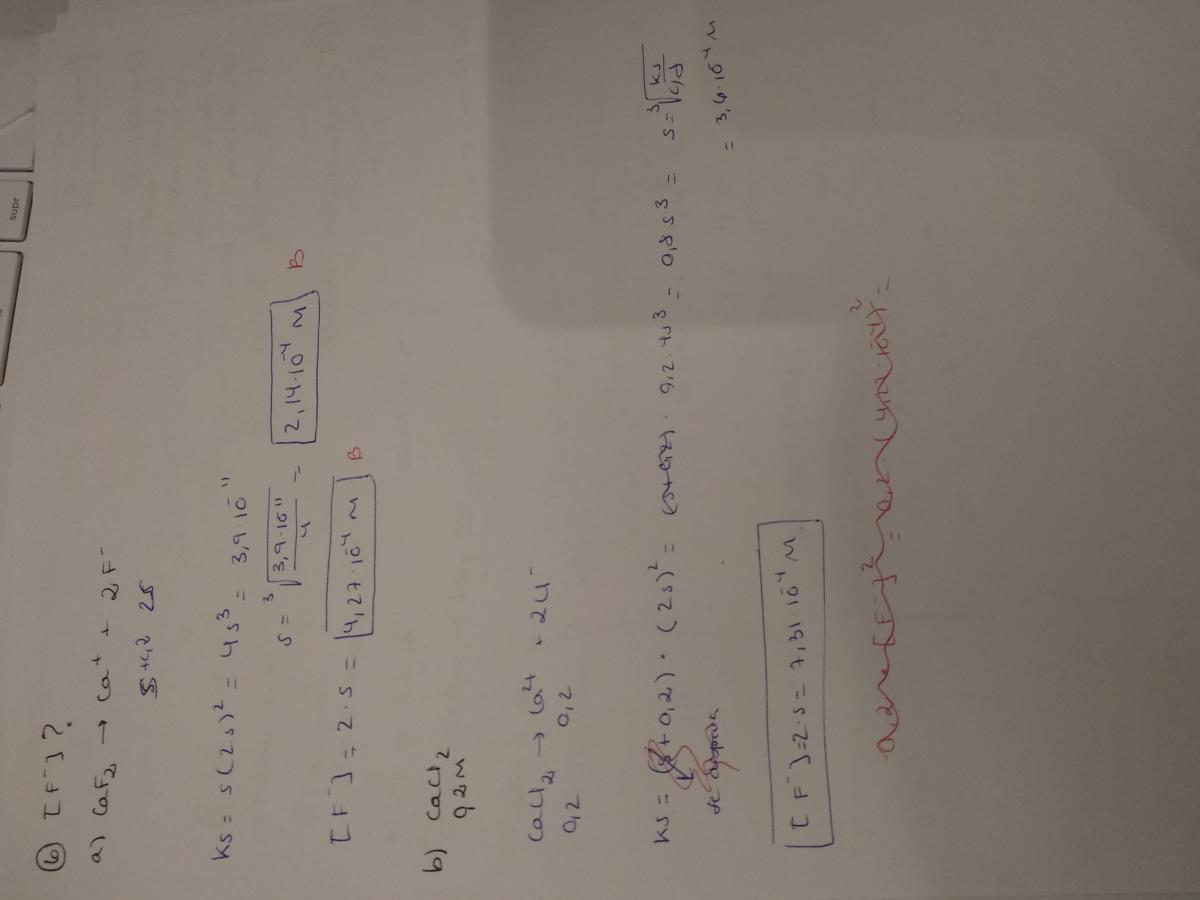 6 [F⁻]?
a) CaF₂ → Ca⁺ + 2F⁻
S+0,2 2S
Ks = s(2s)² = 4s³ = 3,9·10⁻¹¹
s = ³√(3,9·10⁻¹¹/4) = 2,14·10⁻⁴ M B
[F⁻] = 2·s = 4,27·10⁻⁴ M B
b) CaCl₂
0,2M
CaCl₂ → Ca²⁺ + 2Cl⁻
0,2 0,2
Ks = (s+0,2)·(2s)² = (s+0,2)· 0,2·4s³ = 0,8s³ = s = ³√(Ks/0,8)
se = 3,6·10⁻⁴ M
[F⁻]=2·s = 7,31·10⁻⁴ M.
supr